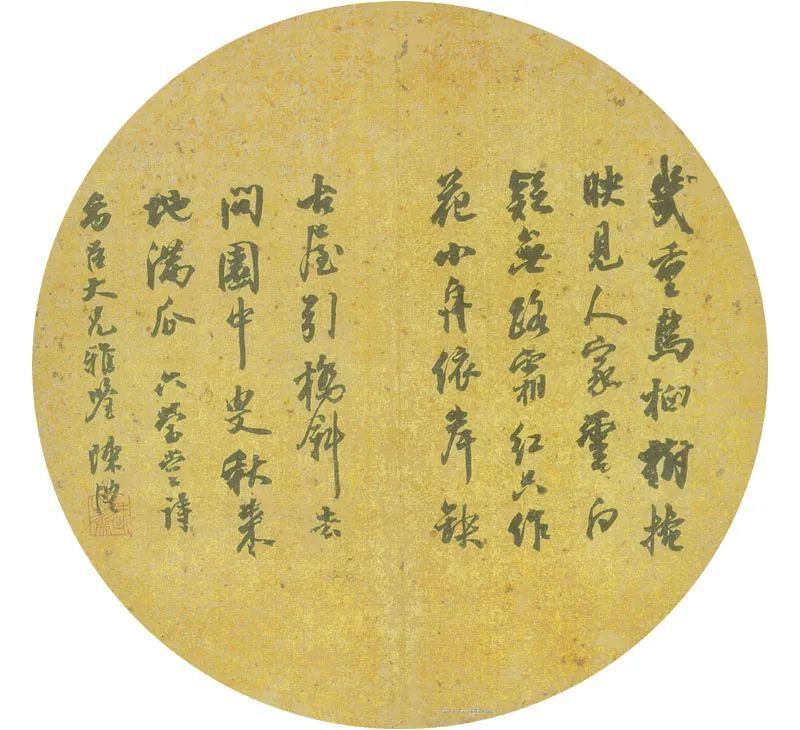 幾重烏桕樹掩
映見人家雲白
疑無路霜紅只作
花小舟依岸缺
古屋引橋斜去
問園中叟秋來
地滿瓜 六瑩堂詩
大兄雅鑒 陳澧